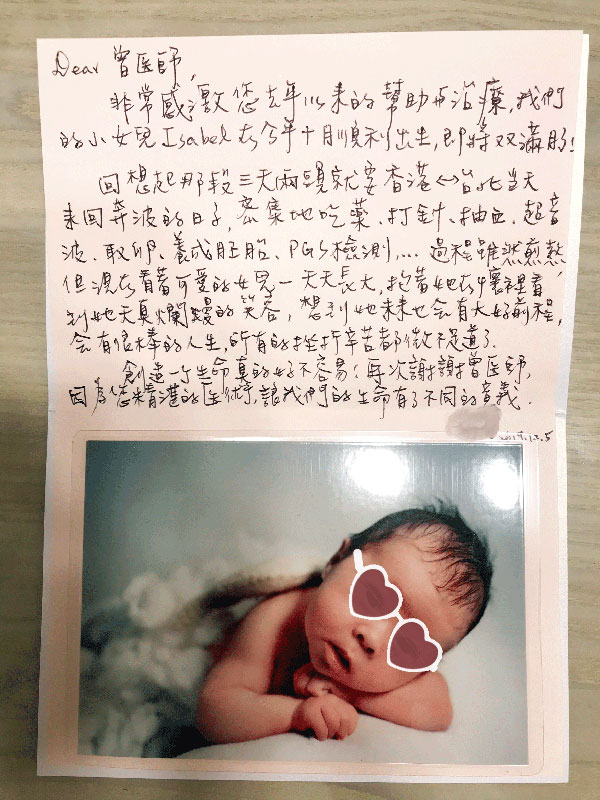 Dear 曾医師,
非常感激您去年以來的幫助與治療,我們
的小女兒Isabel在今年十月順利出生,即將双滿月!
回想起那段三天兩頭就要香港↔台北當天
來回奔波的日子,密集地吃藥、打針、抽血、超音
波、取卵、養成胚胎、PGS檢測,... 過程雖然煎熬
但現在看著可愛的女兒一天天長大,抱著她在懷裡看
到她天真爛漫的笑容,想到她未來也會有大好前程,
會有很棒的人生,所有的挫折辛苦都微不足道了.
創造一个生命真的好不容易!再次謝謝曾医師,
因為您精湛的医術,讓我們的生命有了不同的意義.